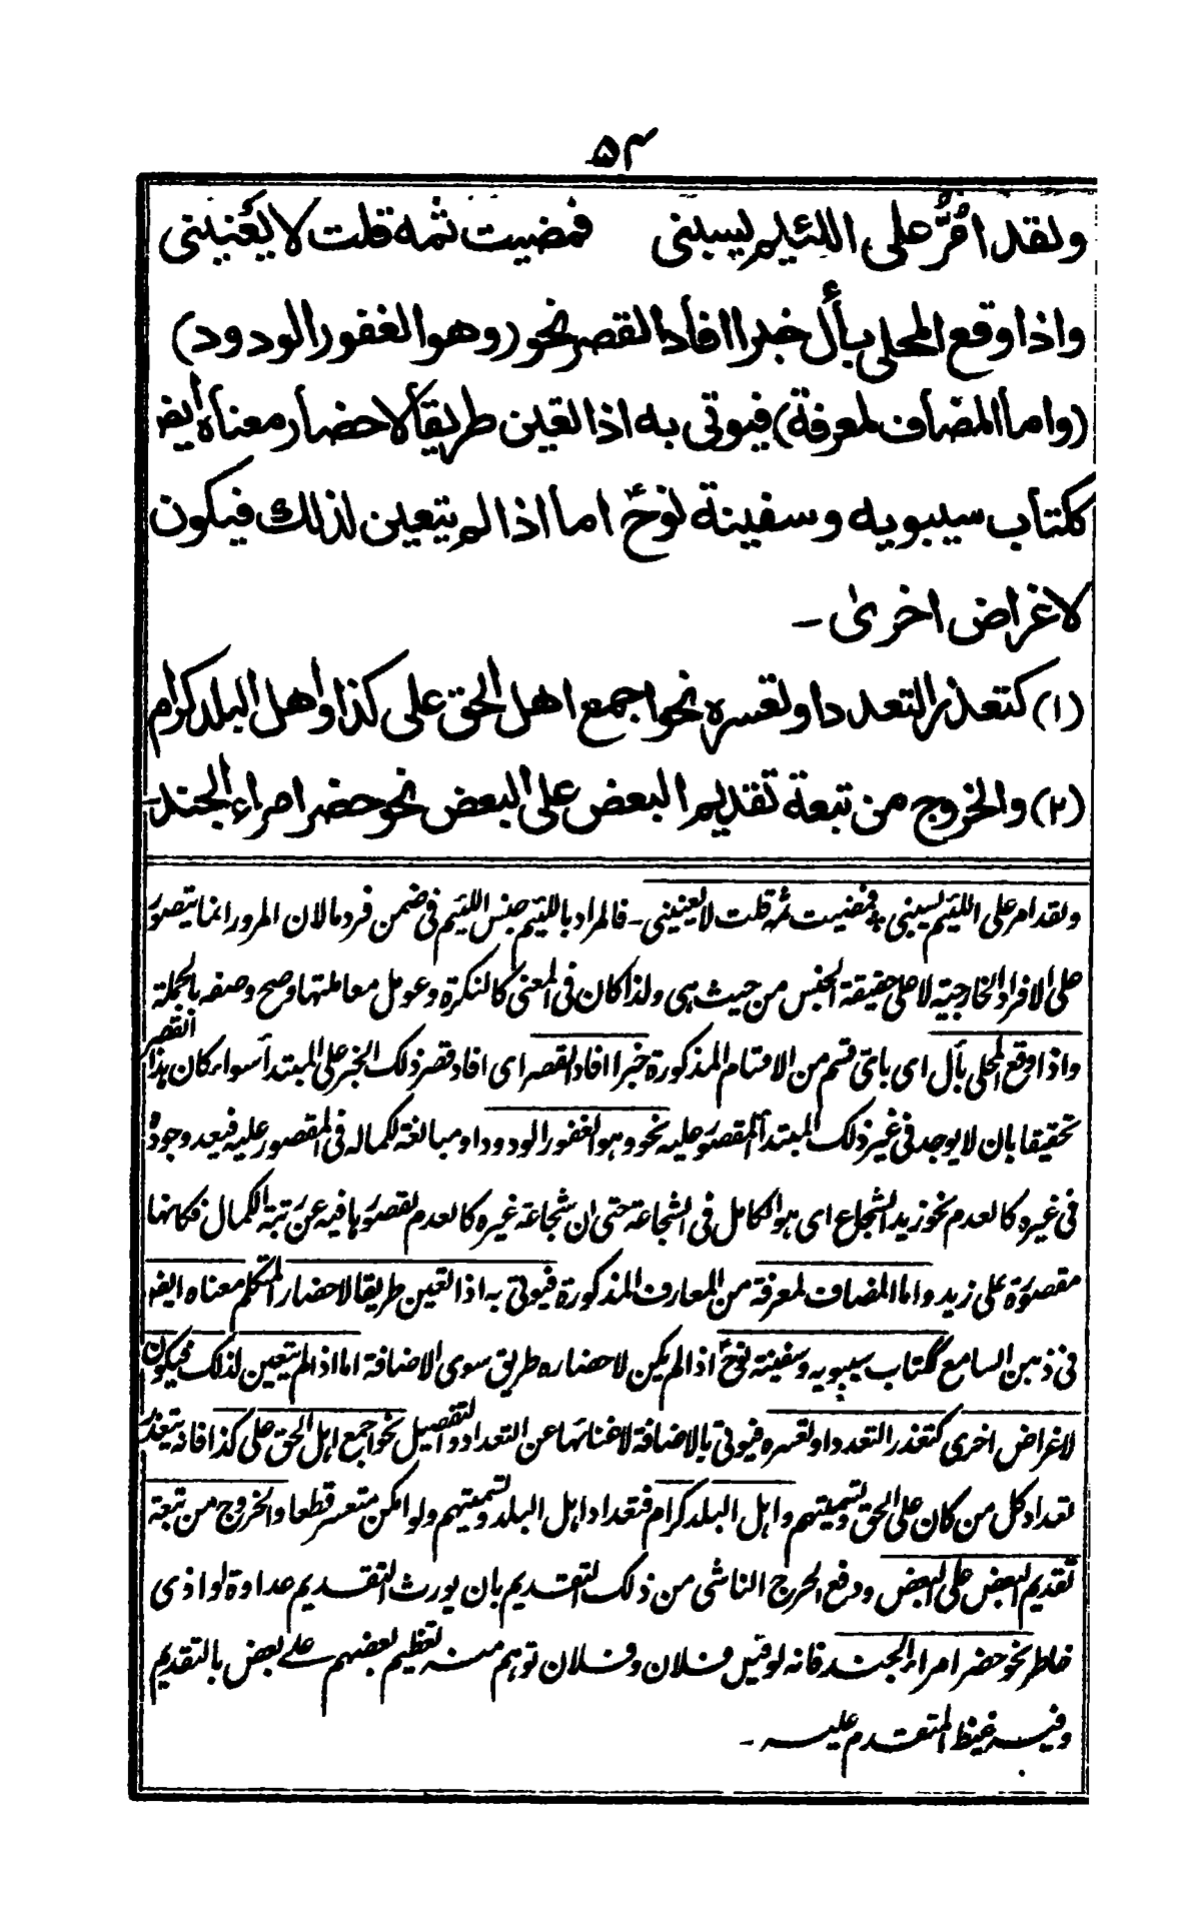 ۵۴
ولقد امُرُّ علی اللئیم یسبنی فمضیت ثمه قلت لا یَعنینی
واذا وقع المحلی بأل خبرا افاد القصر نحو (وهو الغفور الودود)
(واما المضاف لمعرفة) فیوتی به اذا تعین طریقا لاحضار معناه ایضا
ککتاب سیبویه وسفینة نوحؑ اما اذا لم یتعین لذلك فیکون
لاغراض اخریٰ ۔
(۱) کتعذر التعدد او تعسره نحو اجمع اهل الحق علی کذا واهل البلد کرام
(۲) والخروج من تبعة تقدیم البعض علی البعض نحو حضر امراء الجند
ولقد امر علی اللئیم یسبنی ٭ فمضیت ثمه قلت لا یعنینی ۔ فالمراد باللئیم جنس اللئیم فی ضمن فرد ما لان المرور انما یتصور
علی الافراد الخارجیة لا علی حقیقة الجنس من حیث هی ولذا کان فی المعنی کالنکرة وعومل معاملتها وصح وصفه بالجملة
واذا وقع المحلی بأل ای بای قسم من الاقسام المذکورة خبرا افاد القصر ای افاد قصر ذلک الخبر علی المبتدأ سواء کان هذا القصر
تحقیقا بان لا یوجد فی غیر ذلک المبتدأ المقصور علیه نحو وهو الغفور الودود او مبالغة لکماله فی المقصور علیه فیعد وجوده
فی غیره کالعدم نحو زید الشجاع ای هو الکامل فی الشجاعة حتی ان شجاعة غیره کالعدم لقصورها فیه عن رتبة الکمال فکانها
مقصورة علی زید واما المضاف لمعرفة من المعارف المذکورة فیوتی به اذا تعین طریقا لاحضار المتکلم معناه ایضا
فی ذهن السامع ککتاب سیبویه وسفینة نوحؑ اذا لم یکن لاحضاره طریق سوی الاضافة اما اذا لم یتعین لذلک فیکون
لاغراض اخری کتعذر التعدد او تعسره فیوتی بالاضافة لاغنائها عن التعداد والتفصیل نحو اجمع اهل الحق علی کذا فانه یتعذر
تعداد کل من کان علی الحق وتسمیتهم واهل البلد کرام فتعداد اهل البلد وتسمیتهم ولو امکن متعسر قطعا والخروج من تبعة
تقدیم البعض علی البعض ودفع الحرج الناشی من ذلک التقدیم بان یورث التقدیم عداوة او اذی
خاطر نحو حضر امراء الجند فانه لو قیل فلان وفلان توهم منه تعظیم بعضهم علی بعض بالتقدیم
وفیه غیظ المتقدم علیه ۔